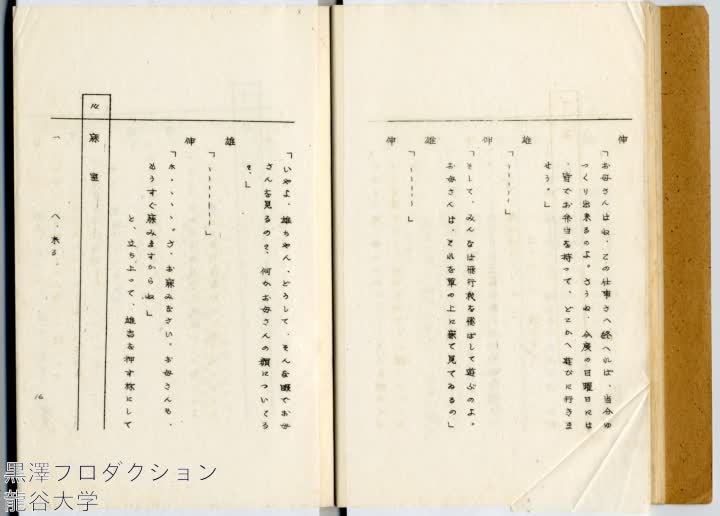 伸
「お母さんはね、この仕事さへ終へれば、当分ゆ
つくり出来るのよ。さうね、今度の日曜日には
、皆でお弁当を持って、どこかへ遊びに行きま
せう。」
雄
「――――――」
伸
「そして、みんなは飛行機を飛ばして遊ぶのよ。
お母さんは、それを草の上に寝て見てゐるの」
雄
「――――――」
伸
「いやよ、雄ちやん、どうして、そんな眼でお母
さんを見るのさ、何かお母さんの顔についてる
の、」
雄
「――――――」
伸
「ホ、、、、さ、お寝みなさい。お母さんも、
もうすぐ寝みますからね」
と、立ち上って、雄吉を押す様にして
寝室
へ、来る。
16
黒澤プロダクション
龍谷大学